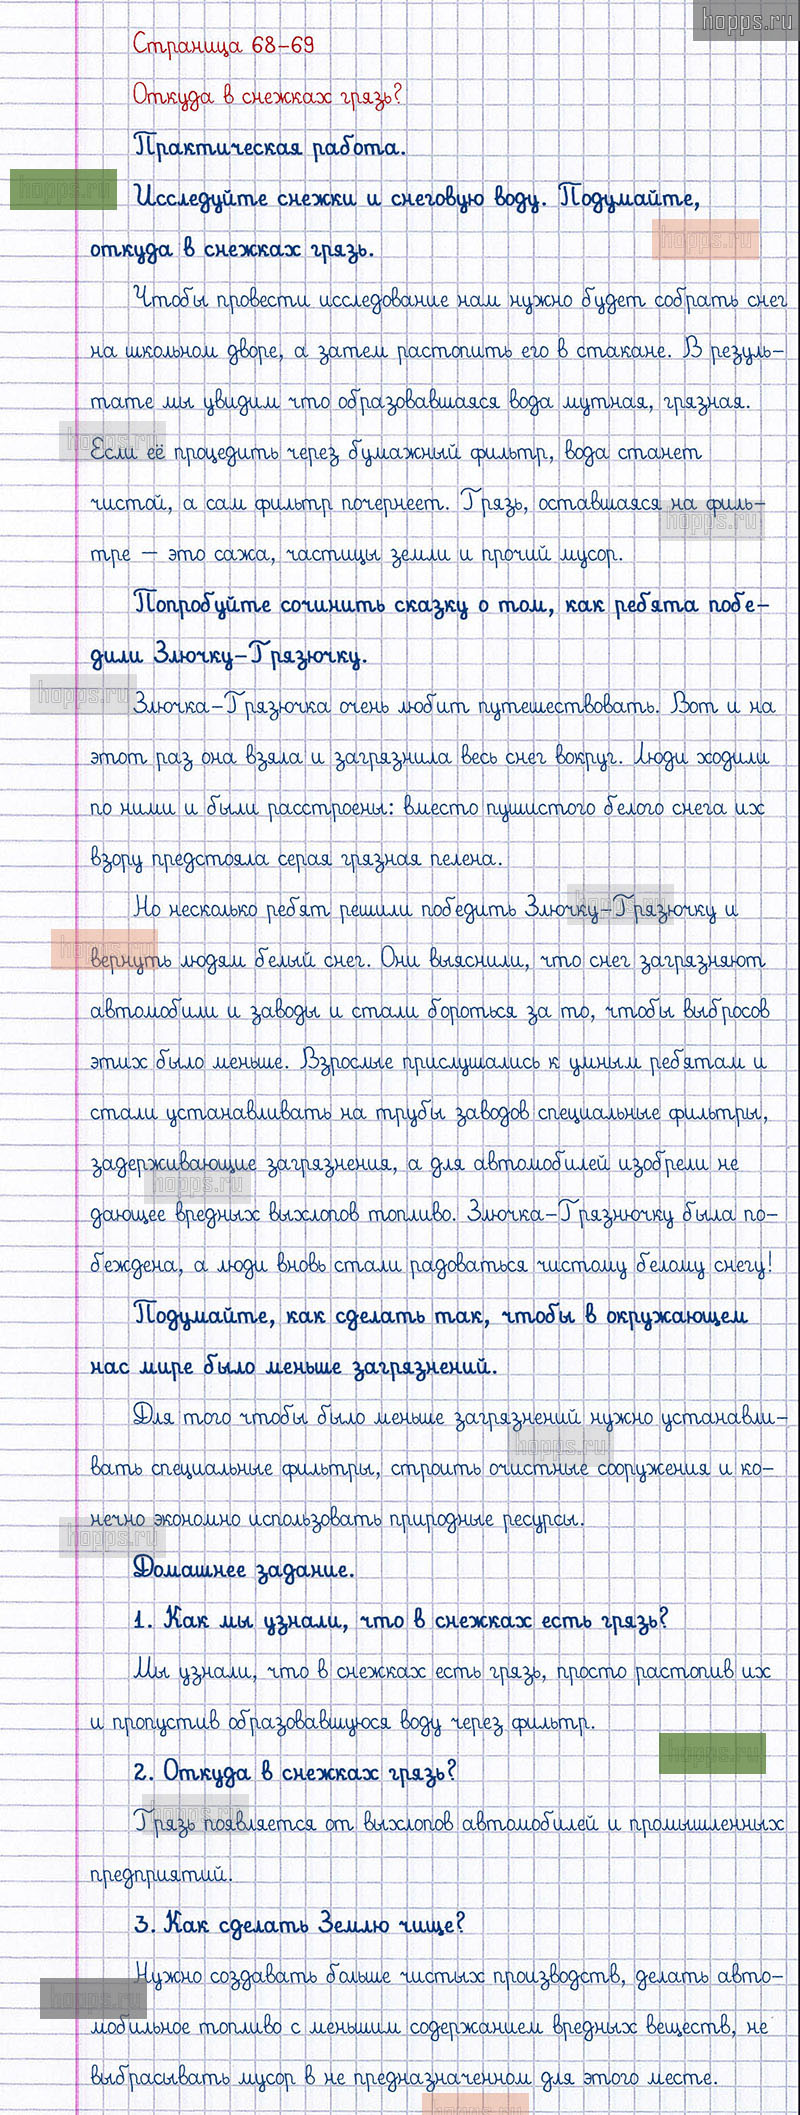 hopps.ru
Страница 68-69
Откуда в снежках грязь?
Практическая работа.
hopps.ru
Исследуйте снежки и снеговую воду. Подумайте,
hopps.ru
откуда в снежках грязь.
Чтобы провести исследование нам нужно будет собрать снег
на школьном дворе, а затем растопить его в стакане. В резуль-
тате мы увидим что образовавшаяся вода мутная, грязная.
hopps.ru
Если её процедить через бумажный фильтр, вода станет
чистой, а сам фильтр почернеет. Грязь, оставшаяся на филь-
hopps.ru
тре – это сажа, частицы земли и прочий мусор.
Попробуйте сочинить сказку о том, как ребята побе-
дили Злючку-Грязючку.
hopps.ru
Злючка-Грязючка очень любит путешествовать. Вот и на
этот раз она взяла и загрязнила весь снег вокруг. Люди ходили
по ними и были расстроены: вместо пушистого белого снега их
взору предстояла серая грязная пелена.
hopps.ru
Но несколько ребят решили победить Злючку-Грязючку и
hopps.ru
вернуть людям белый снег. Они выяснили, что снег загрязняют
автомобили и заводы и стали бороться за то, чтобы выбросов
этих было меньше. Взрослые прислушались к умным ребятам и
стали устанавливать на трубы заводов специальные фильтры,
задерживающие загрязнения, а для автомобилей изобрели не
hopps.ru
дающее вредных выхлопов топливо. Злючка-Грязнючку была по-
беждена, а люди вновь стали радоваться чистому белому снегу!
Подумайте, как сделать так, чтобы в окружающем
нас мире было меньше загрязнений.
Для того чтобы было меньше загрязнений нужно устанавли-
hopps.ru
вать специальные фильтры, строить очистные сооружения и ко-
нечно экономно использовать природные ресурсы.
hopps.ru
Домашнее задание.
1. Как мы узнали, что в снежках есть грязь?
Мы узнали, что в снежках есть грязь, просто растопив их
и пропустив образовавшуюся воду через фильтр.
hopps.ru
2. Откуда в снежках грязь?
hopps.ru
Грязь появляется от выхлопов автомобилей и промышленных
предприятий.
3. Как сделать Землю чище?
Нужно создавать больше чистых производств, делать авто-
hopps.ru
мобильное топливо с меньшим содержанием вредных веществ, не
выбрасывать мусор в не предназначенном для этого месте.
hopps.ru